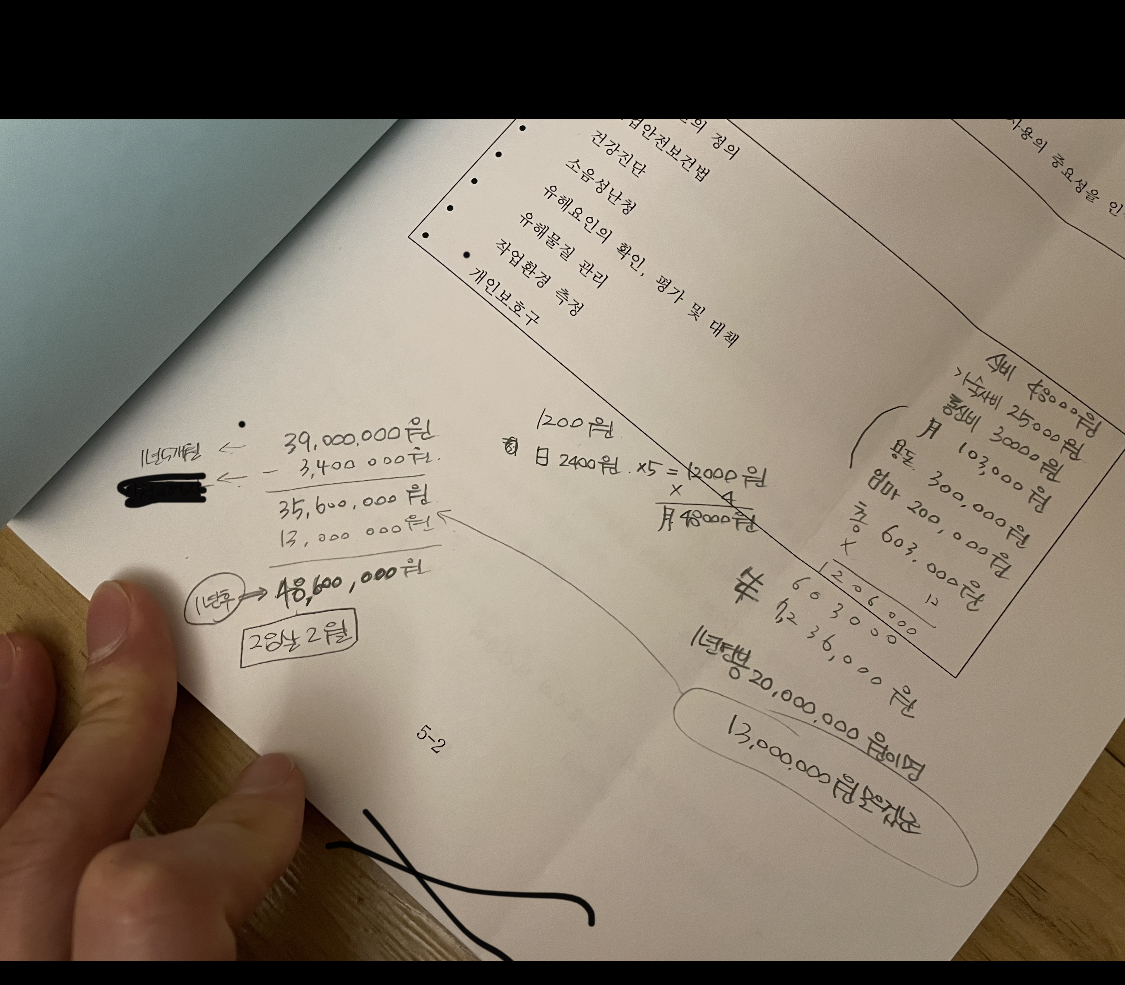 의 정의
업안전보건법
건강진단
소음성난청
유해요인의 확인, 평가 및 대책
유해물질 관리
작업환경 측정
개인보호구
사용의 중요성을 인
1년5개월 ← 39,000,000원
← - 3,400,000원.
35,600,000원
13,000,000원
1년후 → 48,600,000원
2월
1200원
日 2400원 ×5 = 12000원
× 4
月 48000원
식비 48000원
기숙사비 25000원
통신비 30000원
月 103,000원
용돈 300,000원
엄마 200,000원
총 603,000원
× 12
1206000
603000
7,236,000원
1년 20,000,000원이면
13,000,000원
5-2